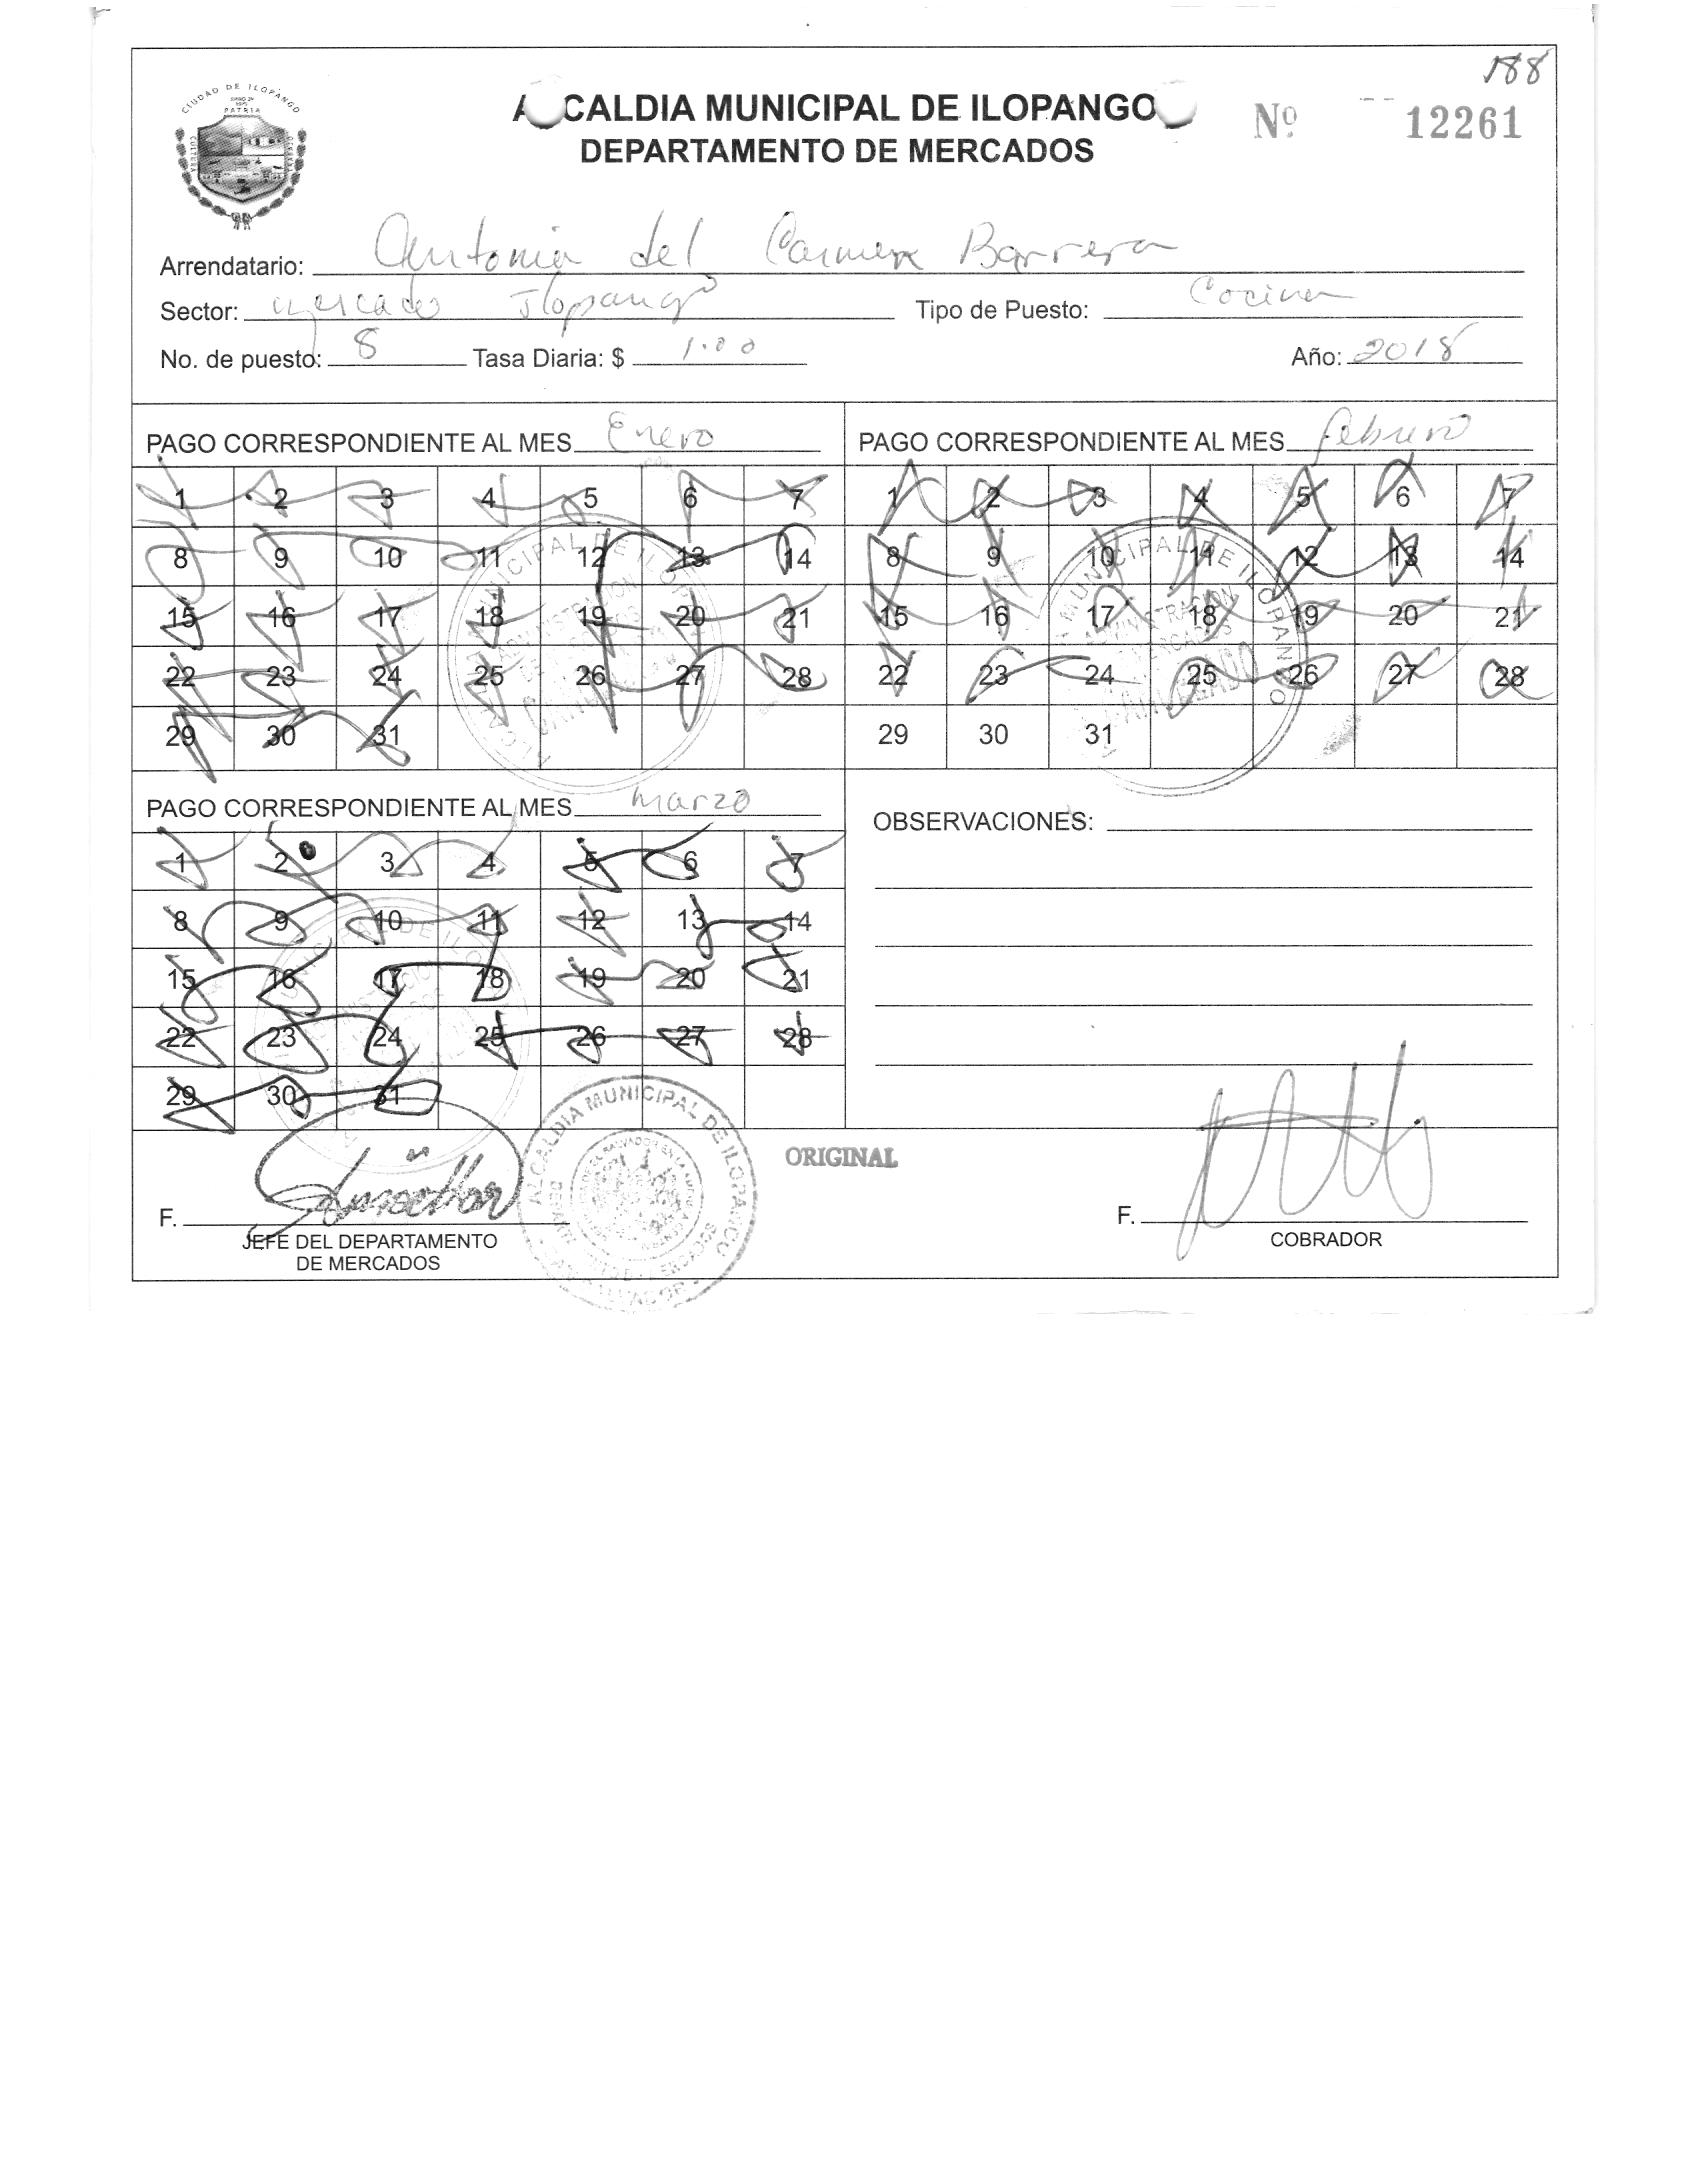 188
CIUDAD DE ILOPANGO
PATRIA
ALCALDIA MUNICIPAL DE ILOPANGO
Nº 12261
DEPARTAMENTO DE MERCADOS
Arrendatario: Antonia del Carmen Barrera
Sector: Mercado Ilopango Tipo de Puesto: Cocina
No. de puesto: 8 Tasa Diaria: $ 1.00 Año: 2018
PAGO CORRESPONDIENTE AL MES Enero
1 2 3 4 5 6 7
8 9 10 11 12 13 14
15 16 17 18 19 20 21
22 23 24 25 26 27 28
29 30 31
PAGO CORRESPONDIENTE AL MES febrero
1 2 3 4 5 6 7
8 9 10 11 12 13 14
15 16 17 18 19 20 21
22 23 24 25 26 27 28
29 30 31
PAGO CORRESPONDIENTE AL MES Marzo
1 2 3 4 5 6 7
8 9 10 11 12 13 14
15 16 17 18 19 20 21
22 23 24 25 26 27 28
29 30 31
OBSERVACIONES:
ALCALDIA MUNICIPAL DE ILOPANGO
ORIGINAL
F.
JEFE DEL DEPARTAMENTO
DE MERCADOS
F.
COBRADOR